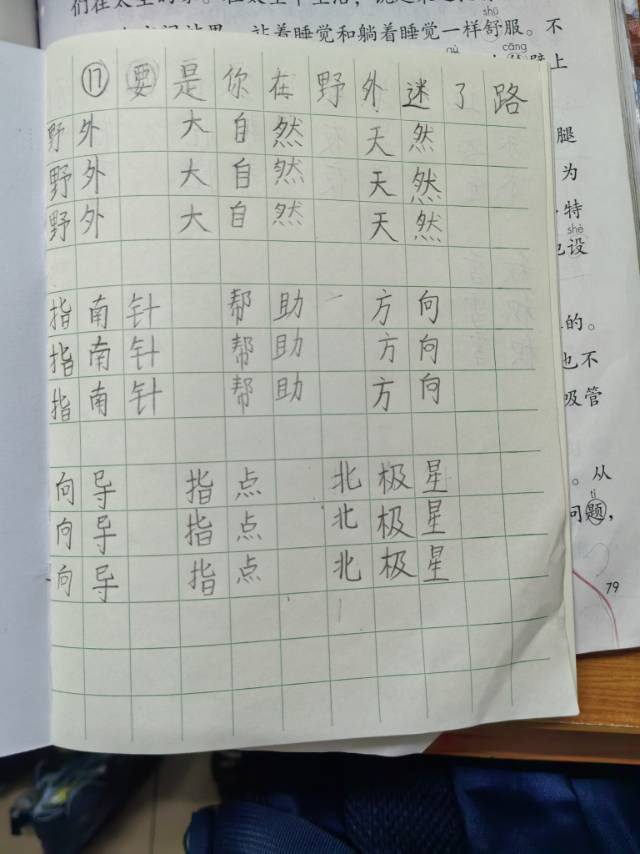 们在太空
站着睡觉和躺着睡觉一样舒服。不
shū
cāng
上
⑰要是你在野外迷了路
野外 大自然 天然
腿
野外 大自然 天然
为
野外 大自然 天然
特
shè
设
指南针 帮助 方向
的。
指南针 帮助 方向
也不
指南针 帮助 方向
吸管
向导 指点 北极星
。从
向导 指点 北极星
tí
问题,
向导 指点 北极星
79